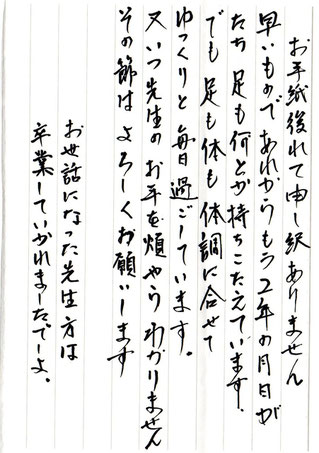 お手紙後れて申し訳ありません
早いものであれからもう2年の月日が
たち 足も何とか持ちこたえています.
でも 足も体も体調に合せて
ゆっくりと毎日過ごしています。
又いつ先生のお手を煩やうわかりません
その節はよろしくお願いします
お世話になった先生方は
卒業していかれましたでしょ。